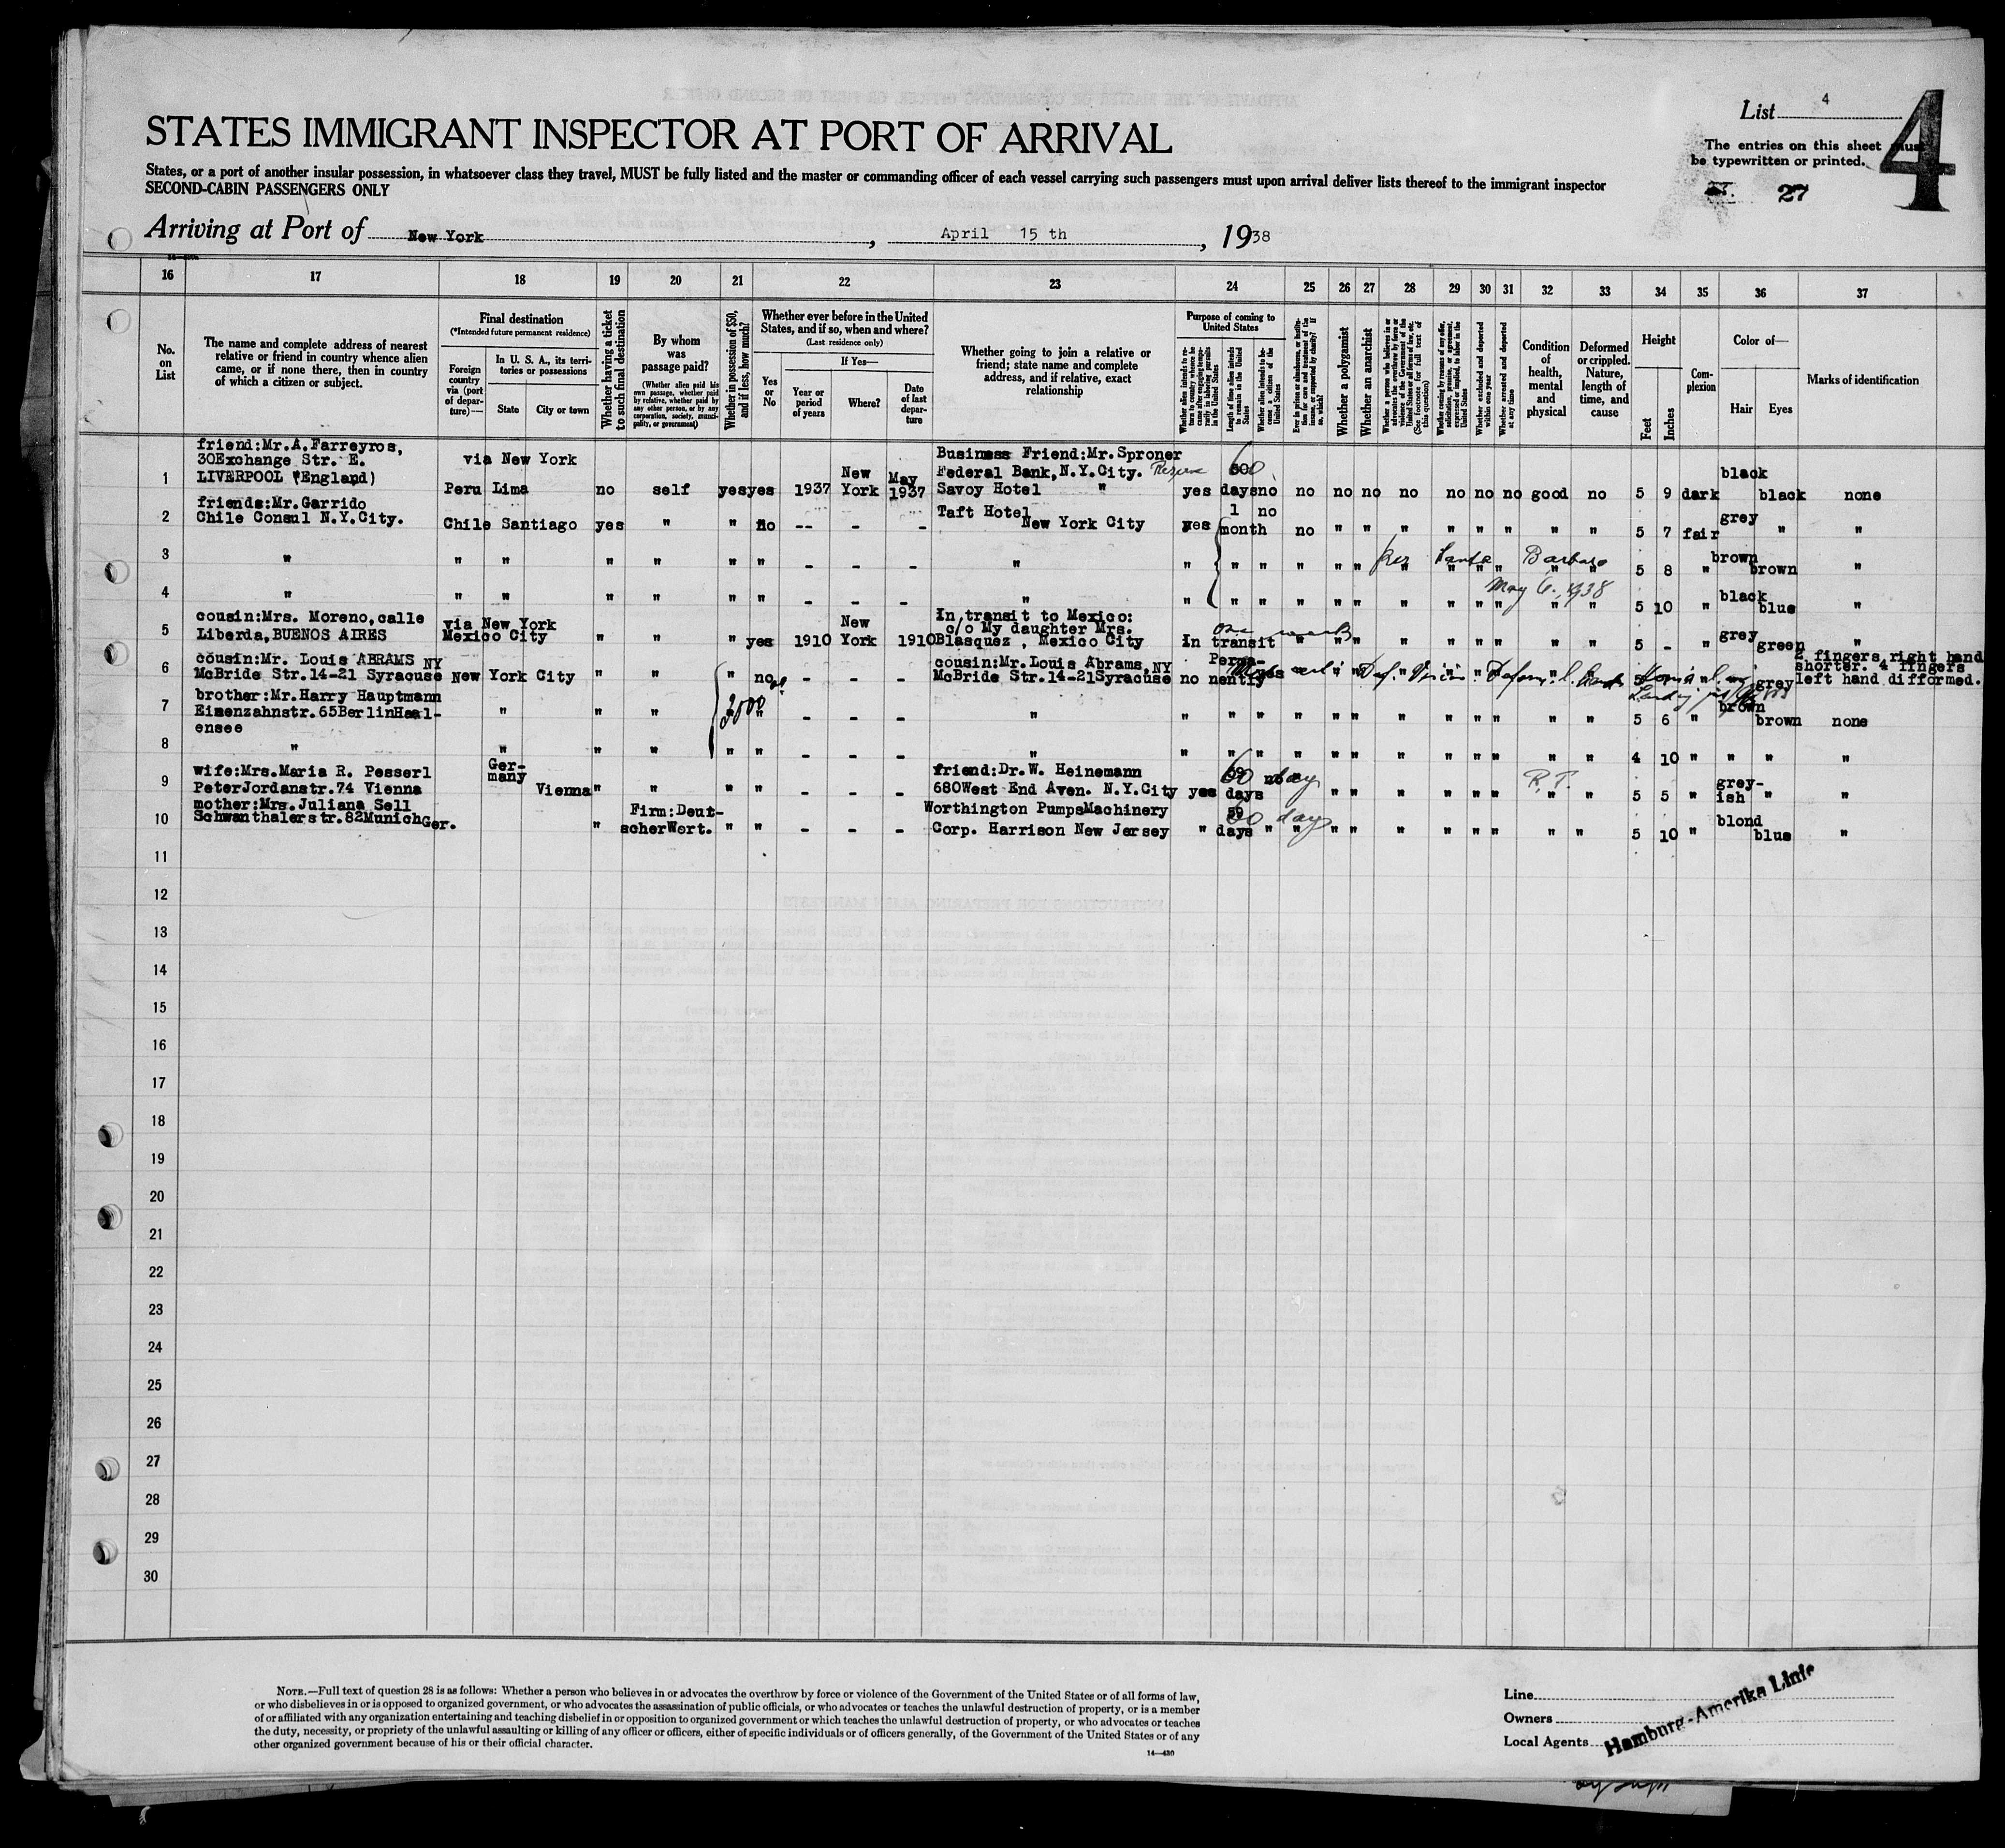 STATES IMMIGRANT INSPECTOR AT PORT OF ARRIVAL
List 4
4
The entries on this sheet must
be typewritten or printed.
27
States, or a port of another insular possession, in whatsoever class they travel, MUST be fully listed and the master or commanding officer of each vessel carrying such passengers must upon arrival deliver lists thereof to the immigrant inspector
SECOND-CABIN PASSENGERS ONLY
Arriving at Port of New York, April 15 th, 1938
16 17 18 19 20 21 22 23 24 25 26 27 28 29 30 31 32 33 34 35 36 37
No. on List
The name and complete address of nearest relative or friend in country whence alien came, or if none there, then in country of which a citizen or subject.
Final destination
(*Intended future permanent residence)
Foreign country via (port of departure)—
In U. S. A., its territories or possessions
State
City or town
Whether having a ticket to such final destination
By whom was passage paid?
(Whether alien paid his own passage, whether paid by relative, whether paid by any other person, or by any corporation, society, municipality, or government)
Whether in possession of $50, and if less, how much?
Whether ever before in the United States, and if so, when and where?
(Last residence only)
Yes or No
If Yes—
Year or period of years
Where?
Date of last departure
Whether going to join a relative or friend; state name and complete address, and if relative, exact relationship
Purpose of coming to United States
Whether alien intends to return to country whence he came after engaging temporarily in laboring pursuits in the United States
Length of time alien intends to remain in the United States
Whether alien intends to become a citizen of the United States
Ever in prison or almshouse, or institution for care and treatment of the insane, or supported by charity? If so, which?
Whether a polygamist
Whether an anarchist
Whether a person who believes in or advocates the overthrow by force or violence of the Government of the United States or all forms of law, etc. (See footnote for full text of this question)
Whether coming by reason of any offer, solicitation, promise, or agreement, expressed or implied, to labor in the United States
Whether excluded and deported within one year
Whether arrested and deported at any time
Condition of health, mental and physical
Deformed or crippled. Nature, length of time, and cause
Height
Feet
Inches
Complexion
Color of—
Hair
Eyes
Marks of identification
friend:Mr.A.Farreyros,
30Exchange Str. E. via New York Business Friend:Mr.Sproner
1 LIVERPOOL (England) New May Federal Bank,N.Y.City. Reserve 60 black
Peru Lima no self yes yes 1937 York 1937 Savoy Hotel " yes days no no no no no no no no good no 5 9 dark black none
friends:Mr.Garrido Taft Hotel 1 no
2 Chile Consul N.Y.City. Chile Santiago yes " " no -- - - New York City yes month no " " " " " " " " 5 7 fair grey " "
3 " " " " " " " - - - " " " " " " " " " " " " " 5 8 " brown brown "
Santa Barbara
4 " " " " " " " - - - " " " " " " " " " " " " " 5 10 " black blue "
May 6, 1938
cousin:Mrs. Moreno,calle via New York New In transit to Mexico:
5 Liberda,BUENOS AIRES Mexico City " " " yes 1910 York 1910 c/o My daughter Mrs.
Blasquez , Mexico City In transit " " " " " " " " " " 5 - " grey green "
cousin:Mr. Louis ABRAMS NY cousin:Mr.Louis Abrams,NY Perma- 2 fingers right hand
6 McBride Str.14-21 Syracuse New York City " " " no - - - McBride Str.14-21Syracuse no nently yes grey shorter. 4 fingers
left hand difformed.
brother:Mr.Harry Hauptmann 3000
7 Eimenzahnstr.65BerlinHaal- " " " " - - - " " " " " " " " " " " " " 5 6 " brown brown none
ensee
8 " " " " " " - - - " " " " " " " " " " " " " 4 10 " " " "
wife:Mrs.Maria R. Pesserl Ger- friend:Dr.W. Heinemann 60 days
9 PeterJordanstr.74 Vienna many Vienna " " " " - - - 680West End Aven. N.Y.City yes days " " " " " " " " 5 5 " grey-
ish " "
R.T.
mother:Mrs.Juliana Sell Firm:Deut- Worthington PumpsMachinery 60 days
10 Schwanthalerstr.82MunichGer. " scherWert. " " - - - Corp. Harrison New Jersey " days " " " " " " " " " " 5 10 " blond blue "
11
12
13
14
15
16
17
18
19
20
21
22
23
24
25
26
27
28
29
30
NOTE.—Full text of question 28 is as follows: Whether a person who believes in or advocates the overthrow by force or violence of the Government of the United States or of all forms of law,
or who disbelieves in or is opposed to organized government, or who advocates the assassination of public officials, or who advocates or teaches the unlawful destruction of property, or is a member
of or affiliated with any organization entertaining and teaching disbelief in or opposition to organized government or which teaches the unlawful destruction of property, or who advocates or teaches
the duty, necessity, or propriety of the unlawful assaulting or killing of any officer or officers, either of specific individuals or of officers generally, of the Government of the United States or of any
other organized government because of his or their official character.
14—430
Line
Owners
Local Agents
Hamburg-Amerika Linie